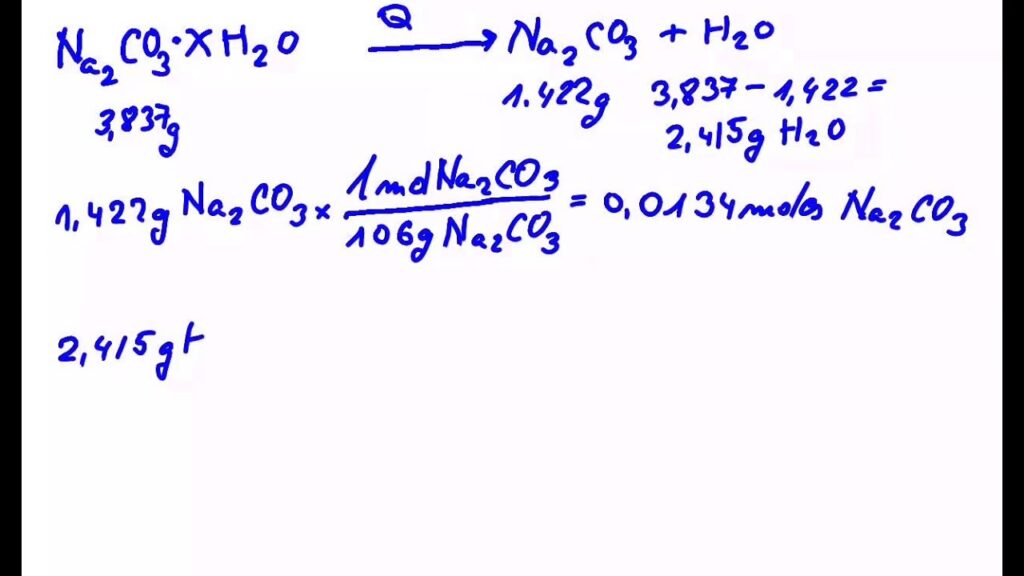 Q
Na₂CO₃·XH₂O → Na₂CO₃ + H₂O
3,837g 1.422g 3,837 - 1,422 =
2,415g H₂O
1,422g Na₂CO₃ × 1mol Na₂CO₃ / 106g Na₂CO₃ = 0,0134 moles Na₂CO₃
2,415g